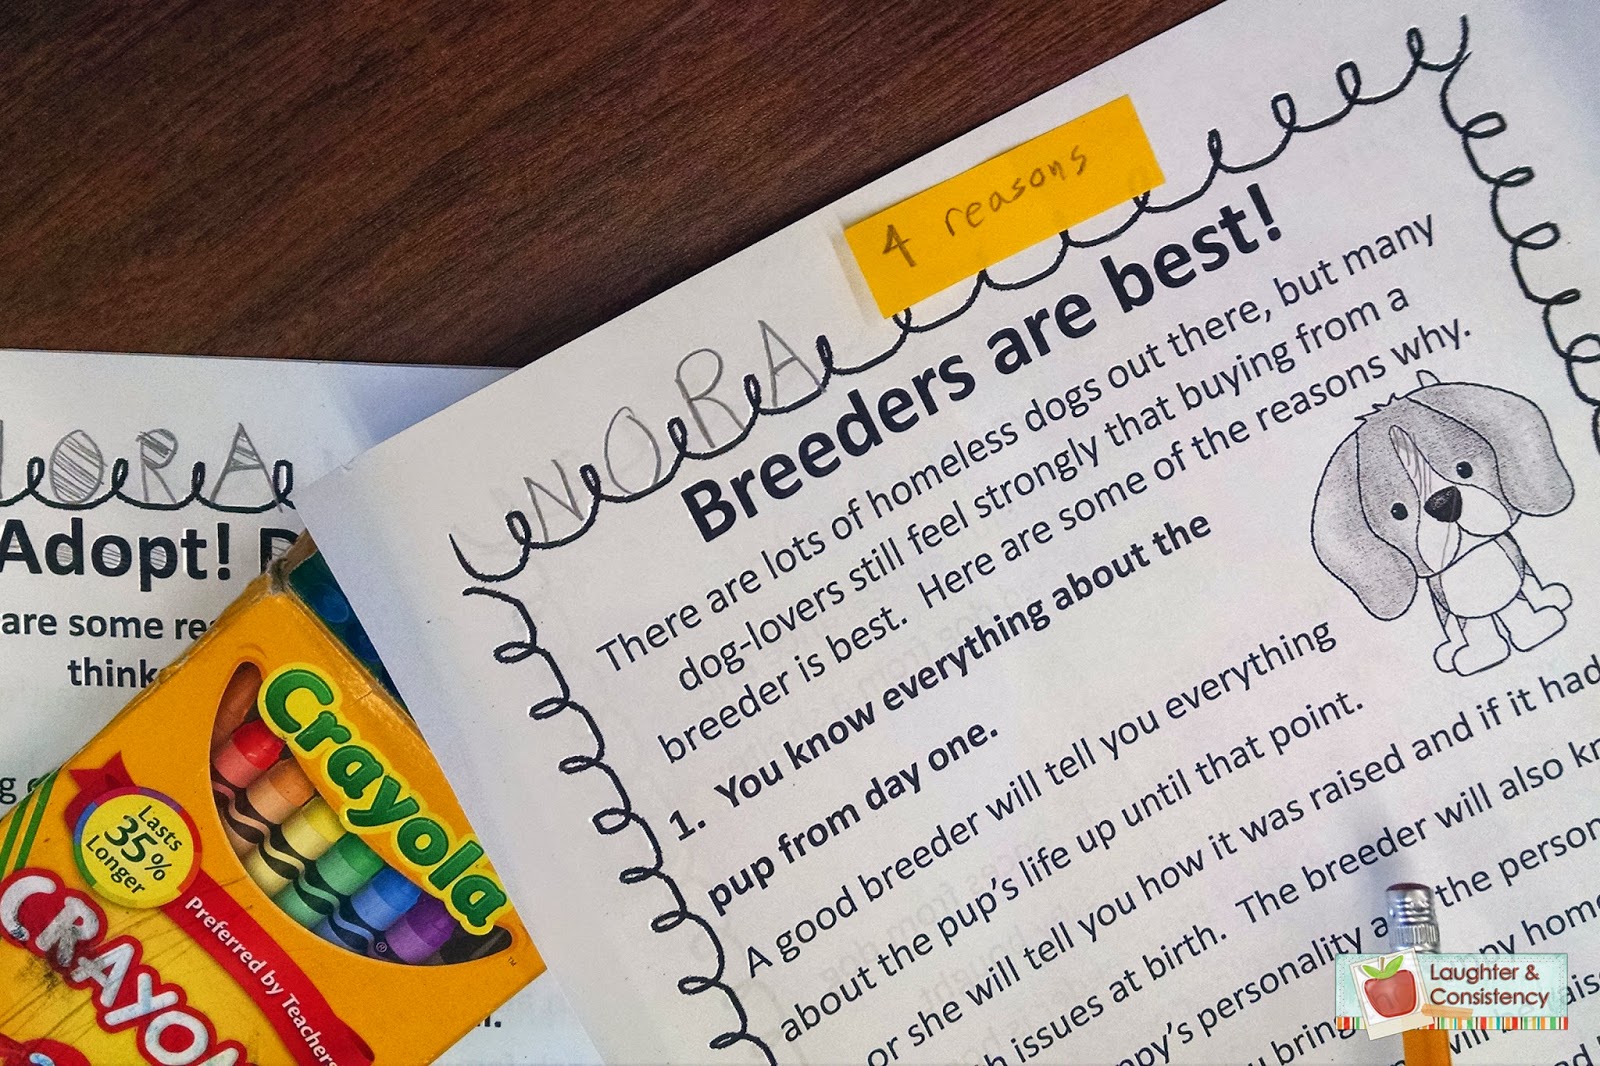 4 reasons
NORA
Breeders are best!
There are lots of homeless dogs out there, but many
dog-lovers still feel strongly that buying from a
breeder is best. Here are some of the reasons why.
1. You know everything about the
pup from day one.
A good breeder will tell you everything
about the pup's life up until that point.
or she will tell you how it was raised and if it had
issues at birth. The breeder will also
personality the
home
you bring
will
ORA
Adopt!
are some
think
Crayola
Lasts
35%
Longer
Preferred by Teachers
CRAYO
Laughter &
Consistency